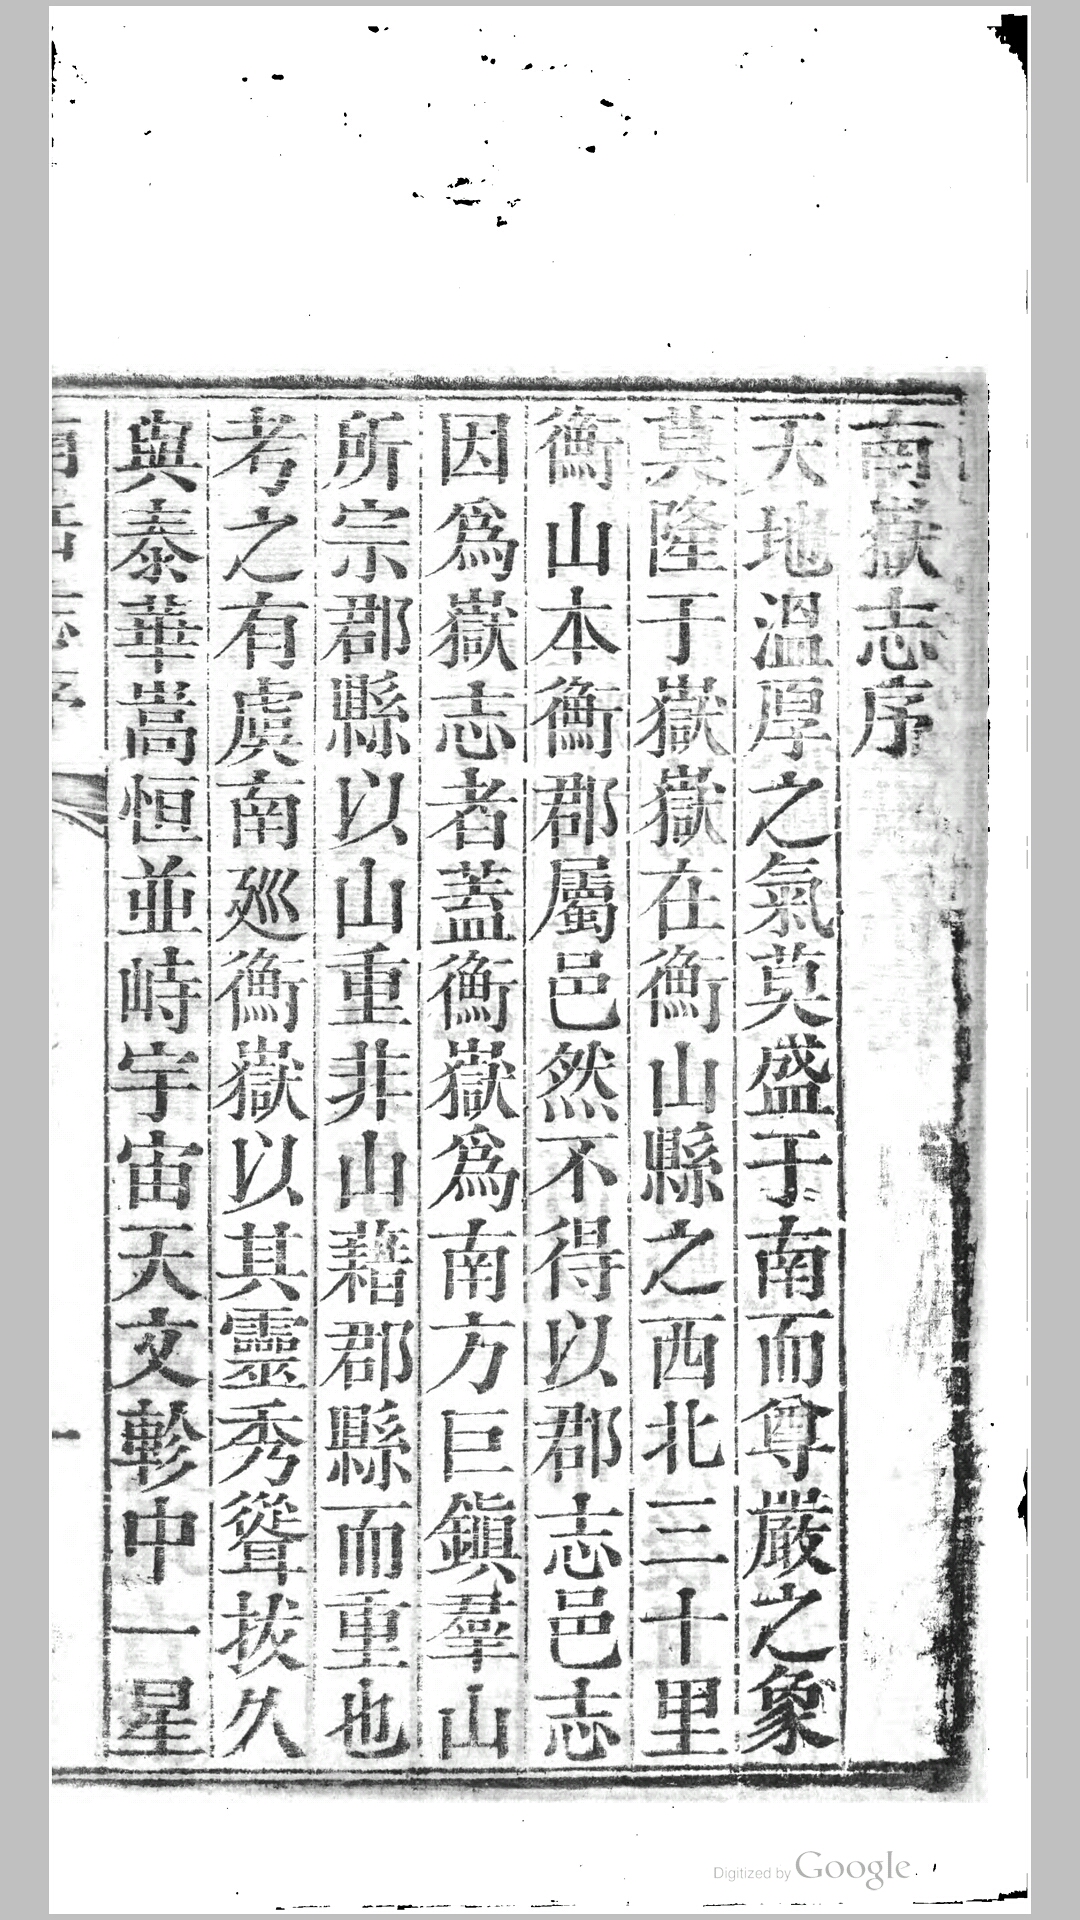 南嶽志序
天地溫厚之氣莫盛于南而尊嚴之象
莫隆于嶽嶽在衡山縣之西北三十里
衡山本衡郡屬邑然不得以郡志邑志
因爲嶽志者蓋衡嶽爲南方巨鎭羣山
所宗郡縣以山重非山藉郡縣而重也
考之有虞南廵衡嶽以其靈秀聳拔久
與泰華嵩恒並峙宇宙天文軫中一星
一
Digitized by Google